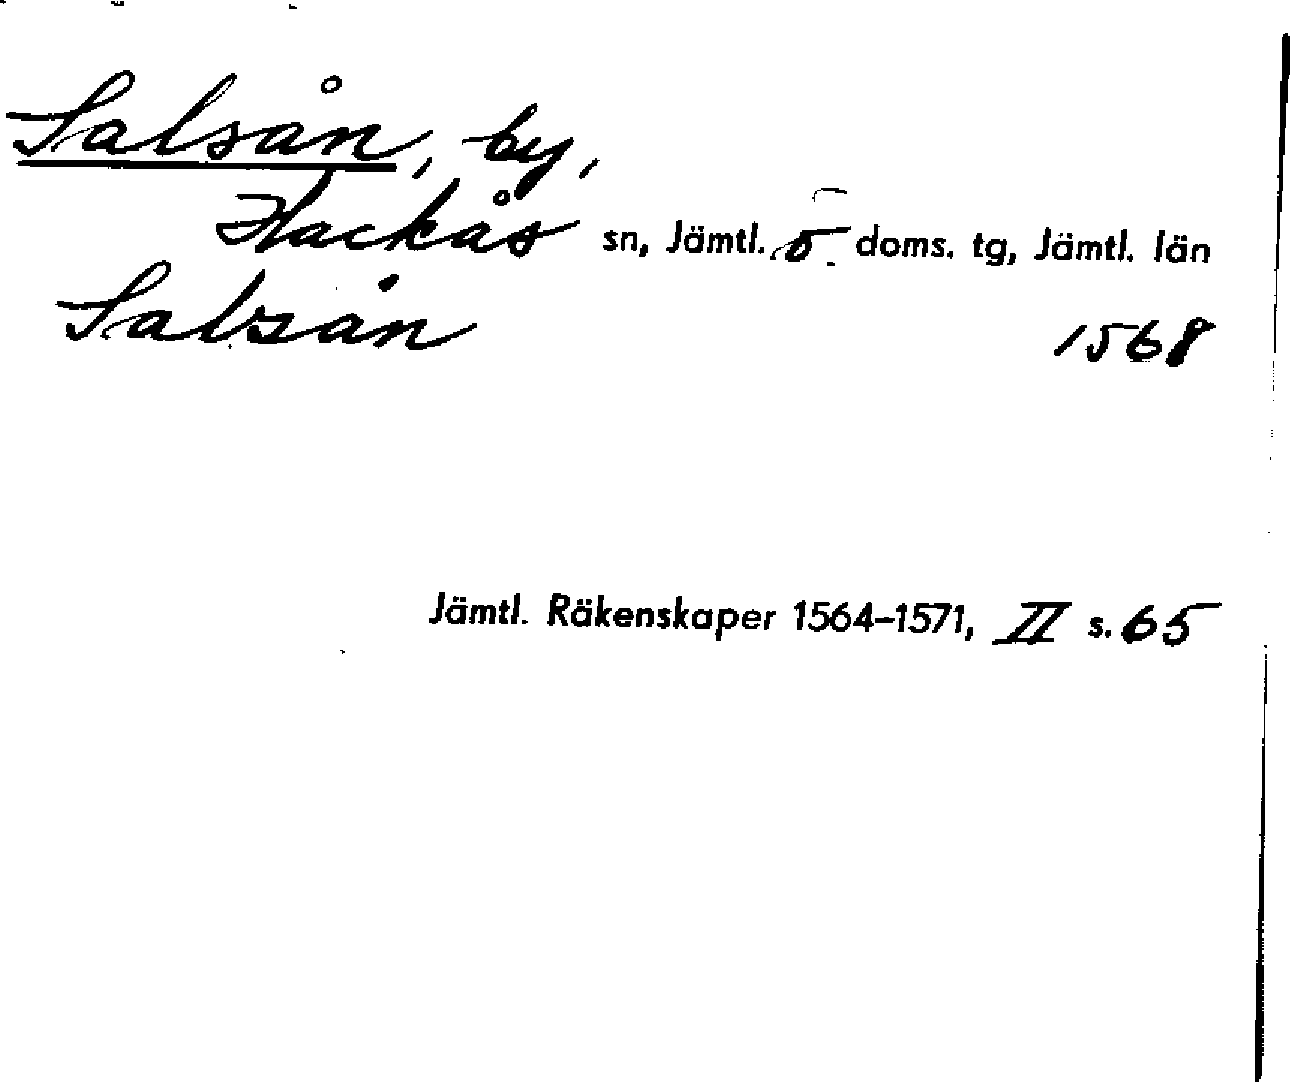 Salsån, by,
Hackås sn, Jämtl. ö. doms. tg, Jämtl. län
Salzån 1568
Jämtl. Räkenskaper 1564–1571, II s. 65